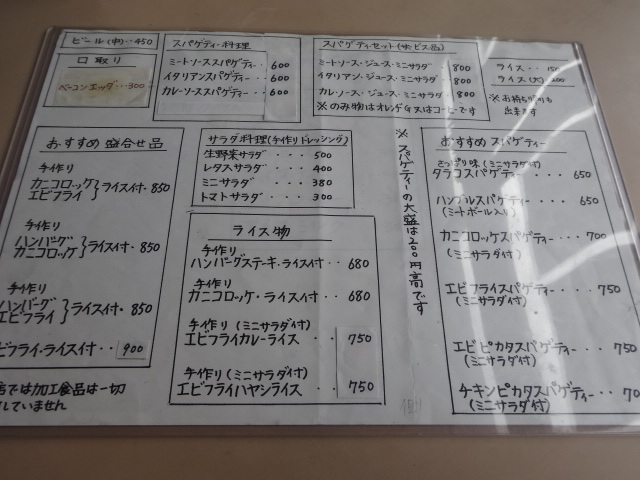 ビール(中)‥450
口取り
ベーコンエッグ‥‥300
スパゲティー料理
ミートソーススパゲティー‥ 600
イタリアンスパゲティー‥ 600
カレーソーススパゲティー‥ 600
スパゲティーセット(サービス品)
ミートソース・ジュース・ミニサラダ 800
イタリアン・ジュース・ミニサラダ‥ 800
カレーソース・ジュース・ミニサラダ 800
※のみ物はオレンヂ又はコーヒーです
ライス‥150
ライス(大)
※お持ち帰りも
出来ます
おすすめ 盛合せ品
手作り
カニコロッケ
エビフライ
ライス付・850
手作り
ハンバーグ
カニコロッケ
ライス付・850
手作り
ハンバーグ
エビフライ
ライス付・850
ビフライ・ライス付‥ 900
店では加工食品は一切
していません
サラダ料理(手作りドレッシング)
生野菜サラダ ・・・ 500
レタスサラダ ・・・ 400
ミニサラダ ・・・・ 380
トマトサラダ ・・・ 300
ライス物
手作り
ハンバーグステーキ・ライス付‥ 680
手作り
カニコロッケ・ライス付‥ 680
手作り(ミニサラダ付)
エビフライカレーライス ・・ 750
手作り(ミニサラダ付)
エビフライハヤシライス ・・ 750
※スパゲティーの大盛は200円高です
おすすめ スパゲティー
さっぱり味(ミニサラダ付)
タラコスパゲティー‥‥ 650
ハンブルスパゲティー‥ 650
(ミートボール入り)
カニコロッケスパゲティー‥700
(ミニサラダ付)
エビフライスパゲティー‥ 750
(ミニサラダ付)
エビピカタスパゲティー‥ 750
(ミニサラダ付)
チキンピカタスパゲティー‥ 700
(ミニサラダ付)